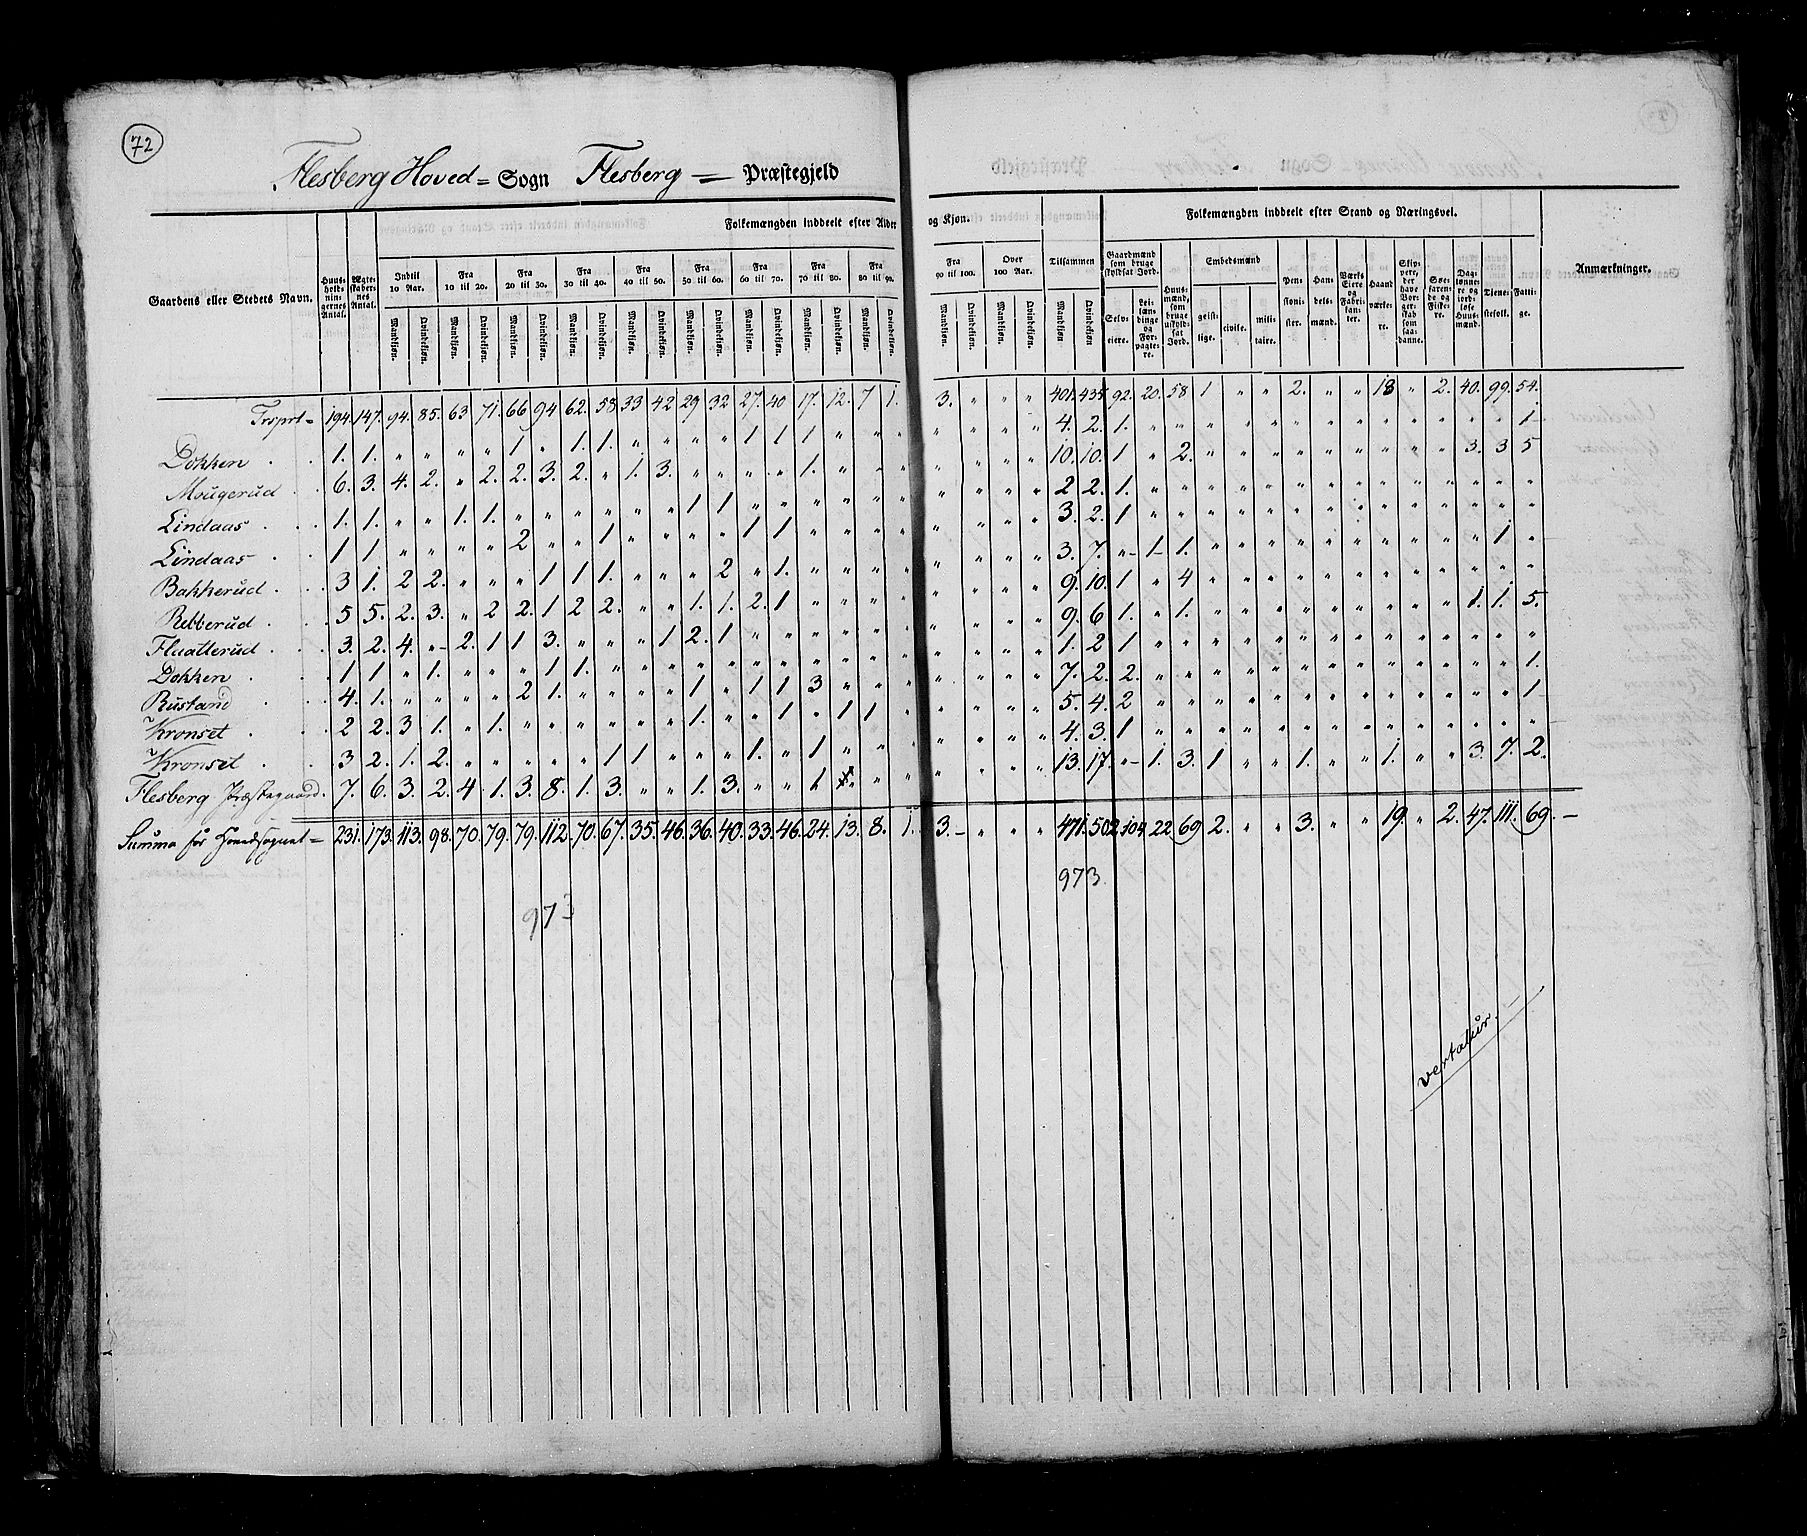 72
Flesberg Hoved = Sogn Flesberg — Præstegjeld
Folkemængden inddeelt efter Alder og Kjøn. Folkemængden inddeelt efter Stand og Næringsvei.
Gaardens eller Stedets Navn. Huusholdningernes Antal. Ægteskabernes Antal. Indtil 10 Aar. Fra 10 til 20. Fra 20 til 30. Fra 30 til 40. Fra 40 til 50. Fra 50 til 60. Fra 60 til 70. Fra 70 til 80. Fra 80 til 90. Fra 90 til 100. Over 100 Aar. Tilsammen Gaardmænd som bruge skyldsat Jord. Huusmænd, som bruge uskyldsat Jord. Embedsmænd Pensionister. Handelsmænd. Værks Eiere og Fabrikanter. Haandværkere. Skippere, der have Borgerskab som saadanne. Søefarende og Fiskere. Daglønnere og jordløse Huusmænd. Tjenestefolk. Fattige. Anmærkninger.
Mandkjøn. Qvindekjøn. Mandkjøn. Qvindekjøn. Mandkjøn. Qvindekjøn. Mandkjøn. Qvindekjøn. Mandkjøn. Qvindekjøn. Mandkjøn. Qvindekjøn. Mandkjøn. Qvindekjøn. Mandkjøn. Qvindekjøn. Mandkjøn. Qvindekjøn. Mandkjøn. Qvindekjøn. Mandkjøn. Qvindekjøn. Mandkjøn Qvindekjøn Selveiere. Leilændinge og Forpagtere. geistlige. civile. militaire.
Trsprt = 194. 147. 94. 85. 63 71. 66 94 62. 58 33 42 29 32 27. 40 17. 12. 7 1. 3. " " " 401. 435 92. 20. 58 1 " " 2. " " 18 " 2. 40. 99. 54.
Dokken 1. 1. " " " " 1 " 1. 1. " " " " 1 1 1 " " " " " " " 4. 2. 1. " " " " " " " " " " " " " 1
Mougerud 6. 3. 4. 2. " 2. 2. 3. 2. " 1. 3. " " " " 1. " " " " " " " 10. 10. 1 " 2. " " " " " " " " " 3. 3 5
Lindaas 1. 1. " " 1. 1. " " " " " " 1 1 " " " " " " " " " " 2 2. 1. " " " " " " " " " " " " " "
Lindaas 1 1 " " " " 2 " " 1 " " " " 1 1 " " " " " " " " 3. 2. 1 " " " " " " " " " " " " " "
Bakkerud 3 1. 2 2. " " " 1 1 1. " " " 2 " 1. " " " " " " " " 3. 7. " 1 1. " " " " " " " " " " 1. "
Rebberud 5 5. 2. 3. " 2 2. 1 2 2. " " 1. 1. 2. 1 " " " " " " " " 9. 10. 1 " 4 " " " " " " " " " " " "
Fluatterud 3. 2. 4. " 2. 1 1 3. " " " 1 2. 1 " " " " " " " " " " 9 6 1. " 1. " " " " " " " " " 1. 1. 5.
Dokken 1 1 " 1. " " " 1 1. " " " " " " " " " " " " " " " 1. 2 1 " " " " " " " " " " " " " "
Rustand 4. 1. " " " " 2 1. " " " " 1 " 1 1 3 " " " " " " " 7. 2. 2. " " " " " " " " " " " " " 1.
Kronset 2 2. 3 1. " 1. " " " " " " 1. " " 1 " 1 1 " " " " " 5. 4. 2 " " " " " " " " " " " " " 1
Kronset 3 2. 1. 2. " " " " " 1 1 " " " 1. " 1 " " " " " " " 4. 3. 1 " " " " " " " " " " " " " "
Flesberg Præstegaard. 7. 6. 3. 2. 4 1. 3. 8. 1. 3. " " 1. 3. " " 1. " " " " " " " 13. 17. " 1. 3. 1 " " 1. " " 1. " " 3. 7. 2.
Summa for Hovedsognet = 231. 173. 113. 98. 70. 79. 79. 112. 70. 67. 35. 46. 36. 40. 33. 46. 24. 13. 8. 1. 3. " " " 471. 502 104 22 69 2. " " 3. " " 19. " 2. 47. 111. 69.
973
973
vertatur.